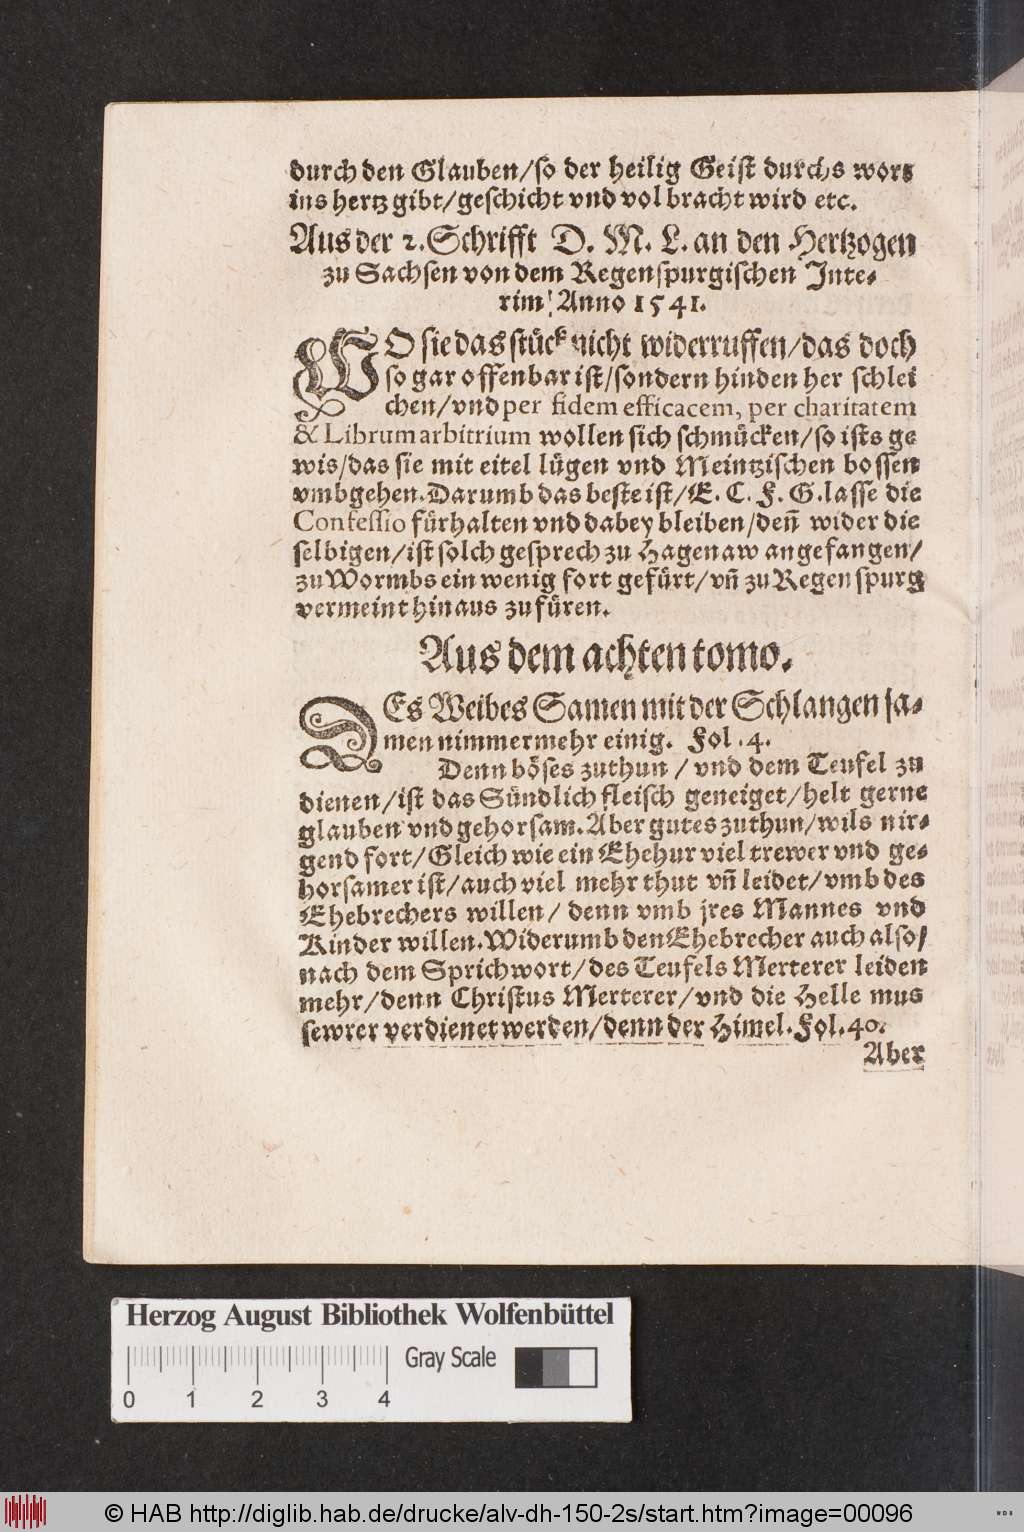 durch den Glauben/so der heilig Geist durchs wort
ins hertz gibt/geschicht vnd vol bracht wird etc.
Aus der 2. Schrifft D. M. L. an den Hertzogen
zu Sachsen von dem Regenspurgischen Inte-
rim/ Anno 1541.
WO sie das stück nicht widerruffen/das doch
so gar offenbar ist/sondern hinden her schlei
chen/vnd per fidem efficacem, per charitatem
& Librum arbitrium wollen sich schmücken/so ists ge
wis/das sie mit eitel lügen vnd Meintzischen bossen
vmbgehen. Darumb das beste ist/E. C. F. G. lasse die
Confessio fürhalten vnd dabey bleiben/deñ wider die
selbigen/ist solch gesprech zu Hagenaw angefangen/
zu Wormbs ein wenig fort gefürt/vñ zu Regenspurg
vermeint hinaus zufüren.
Aus dem achten tomo.
DEs Weibes Samen mit der Schlangen sa-
men nimmermehr einig. Fol. 4.
Denn böses zuthun/vnd dem Teufel zu
dienen/ist das Sündlich fleisch geneiget/helt gerne
glauben vnd gehorsam. Aber gutes zuthun/wils nir-
gend fort/Gleich wie ein Ehehur viel trewer vnd ge-
horsamer ist/auch viel mehr thut vñ leidet/vmb des
Ehebrechers willen/denn vmb jres Mannes vnd
Kinder willen. Widerumb den Ehebrecher auch also/
nach dem Sprichwort/des Teufels Merterer leiden
mehr/denn Christus Merterer/vnd die Helle mus
sewrer verdienet werden/denn der Himel. Fol. 40.
Aber
Herzog August Bibliothek Wolfenbüttel
Gray Scale
0 1 2 3 4
© HAB http://diglib.hab.de/drucke/alv-dh-150-2s/start.htm?image=00096